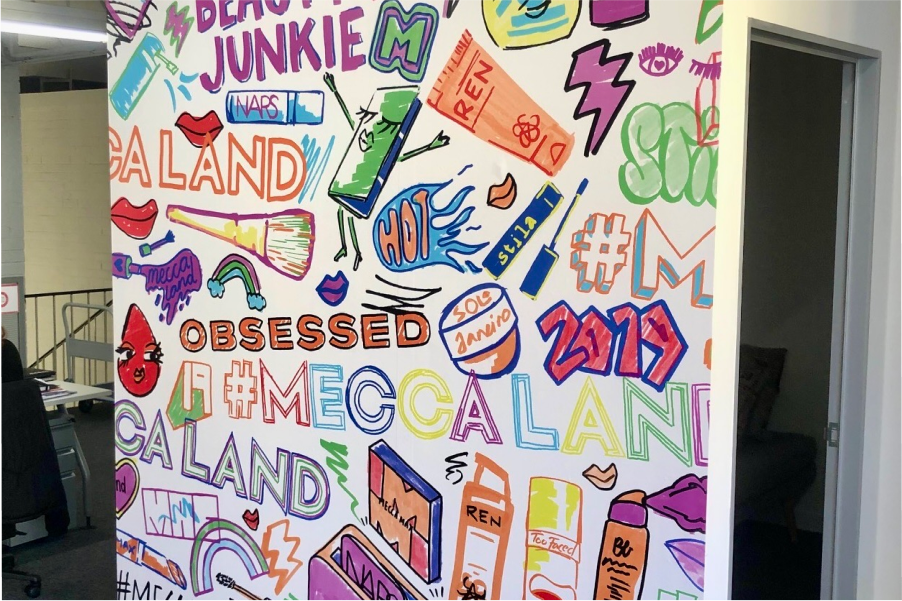 BEAUTY
JUNKIE
M
NARS
REN
CCA LAND
HOT
stila
#M
mecca
land
OBSESSED
SOL
Janeiro
2019
19 #MECCALAND
CCA LAND
MECCA MAX
REN
Too Faced
NARS
BG